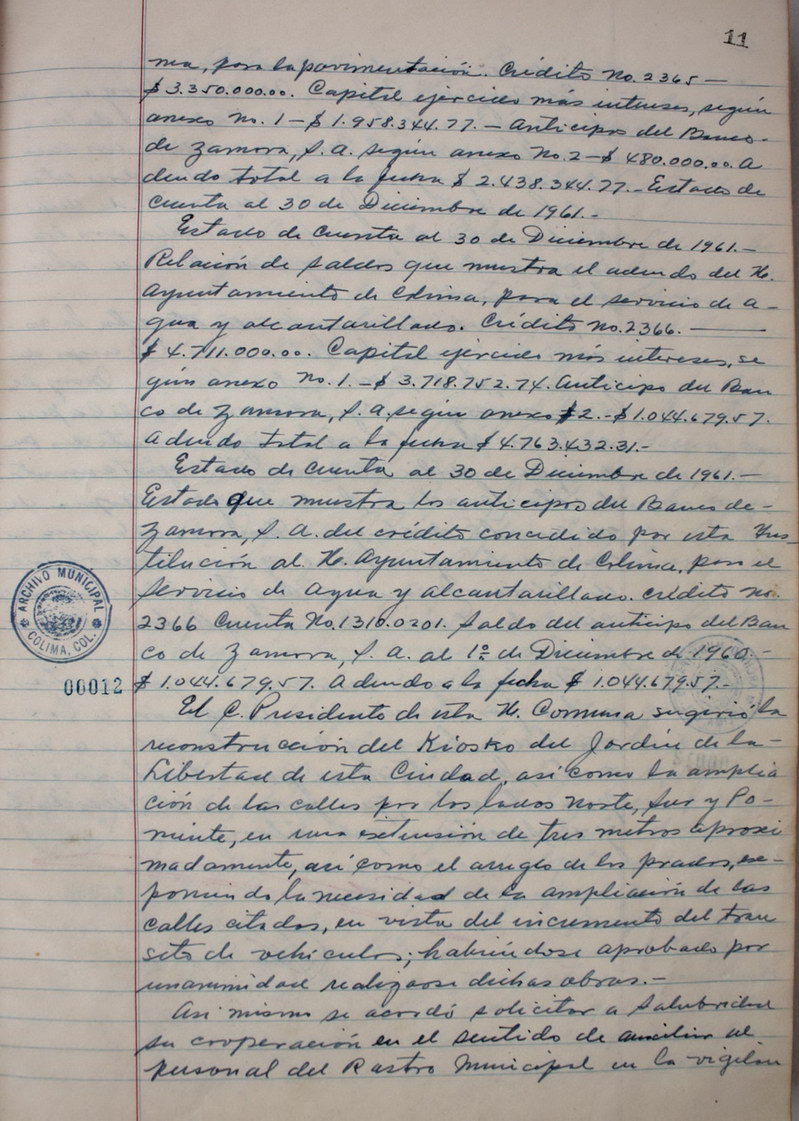 11
ma, para la pavimentación. Crédito No. 2365 —
$ 3.350.000.00. Capital ejercido más intereses, según
anexo No. 1 — $ 1.958.344.77. — Anticipos del Banco
de Zamora, S. A. según anexo No. 2 — $ 480.000.00 A
deudo total a la fecha $ 2.438.344.77. — Estado de
cuenta al 30 de Diciembre de 1961. -
Estado de Cuenta al 30 de Diciembre de 1961. —
Relación de saldos que muestra el adeudo del H.
Ayuntamiento de Colima, para el servicio de a-
gua y alcantarillado. Crédito No. 2366. ———
$ 4.711.000.00. Capital ejercido más intereses, se
gún anexo No. 1. — $ 3.718.752.74. Anticipo del Ban
co de Zamora, S. A. según anexo # 2. - $ 1.044.679.57.
Adeudo total a la fecha $ 4.763.432.31. -
Estado de Cuenta al 30 de Diciembre de 1961. —
Estado que muestra los anticipos del Banco de -
Zamora, S. A. del crédito concedido por esta Ins-
titución al H. Ayuntamiento de Colima, para el
servicio de Agua y alcantarillado. Crédito No.
2366 Cuenta No. 1310.0201. Saldo del anticipo del Ban
co de Zamora, S. A. al 1o. de Diciembre de 1960. -
$ 1.044.679.57. Adeudo a la fecha $ 1.044.679.57. -
El C. Presidente de esta H. Comuna sugirió la
reconstrucción del Kiosko del Jardín de la -
Libertad de esta Ciudad, así como la amplia
ción de las calles por los lados Norte, Sur y Po-
niente, en una extensión de tres metros aproxi
madamente, así como el arreglo de los prados, ex-
poniendo la necesidad de la ampliación de las
calles citadas, en vista del incremento del tran
sito de vehiculos; habiendose aprobado por
unanimidad realizarse dichas obras. -
Asi mismo se acordó solicitar a Salubridad
su cooperación en el sentido de auxiliar al
personal del Rastro Municipal en la vigilan
ARCHIVO MUNICIPAL
COLIMA, COL.
00012